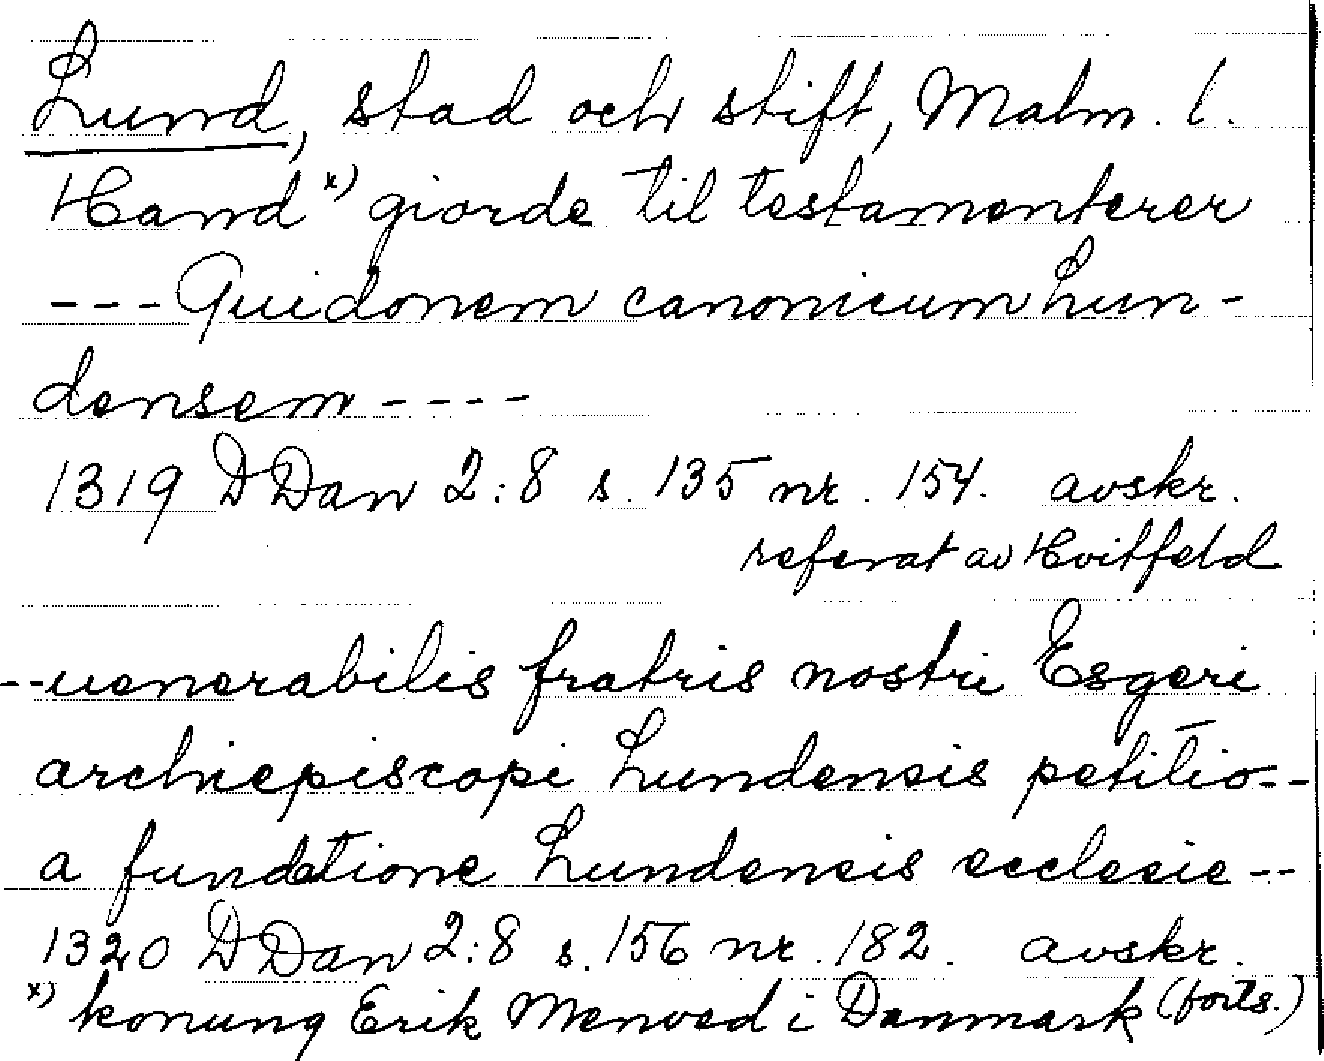 Lund, stad och stift, Malm. l.
Hand x) giorde til testamenterer
--- Guidonem canonicum Lun-
densem ----
1319 DDan 2:8 s. 135 nr. 154. avskr.
referat av Hvitfeld
--uenerabilis fratris nostri Esgeri
archiepiscopi Lundensis petitio--
a fundatione Lundensis ecclesie--
1320 DDan 2:8 s. 156 nr. 182. avskr.
x) konung Erik Menved i Danmark (forts.)